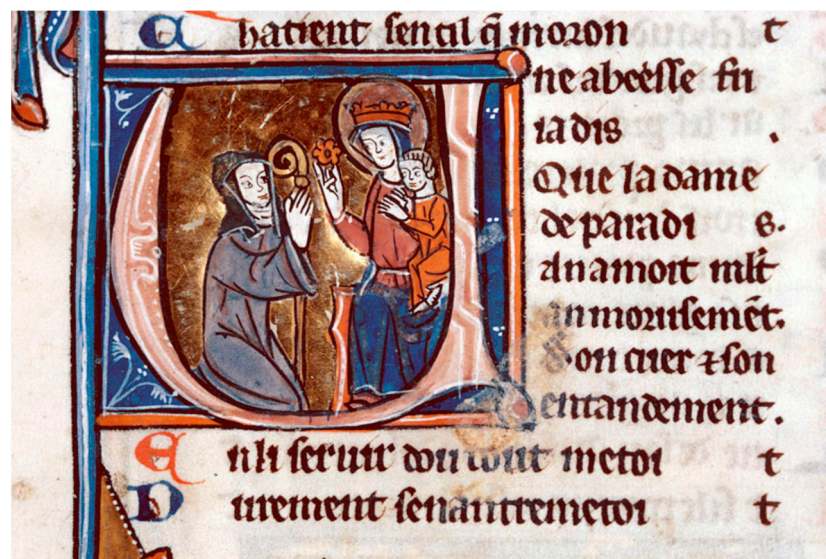 C hatient sen cil q̃ moron t
U ne abeesse fu
iadis .
Que la dame
de paradi s.
An amoit ml̃t
an morusemēt.
Son cuer ⁊ son
entandement.
E nli seruir dou tout metoi t
D urement senantremetoi t